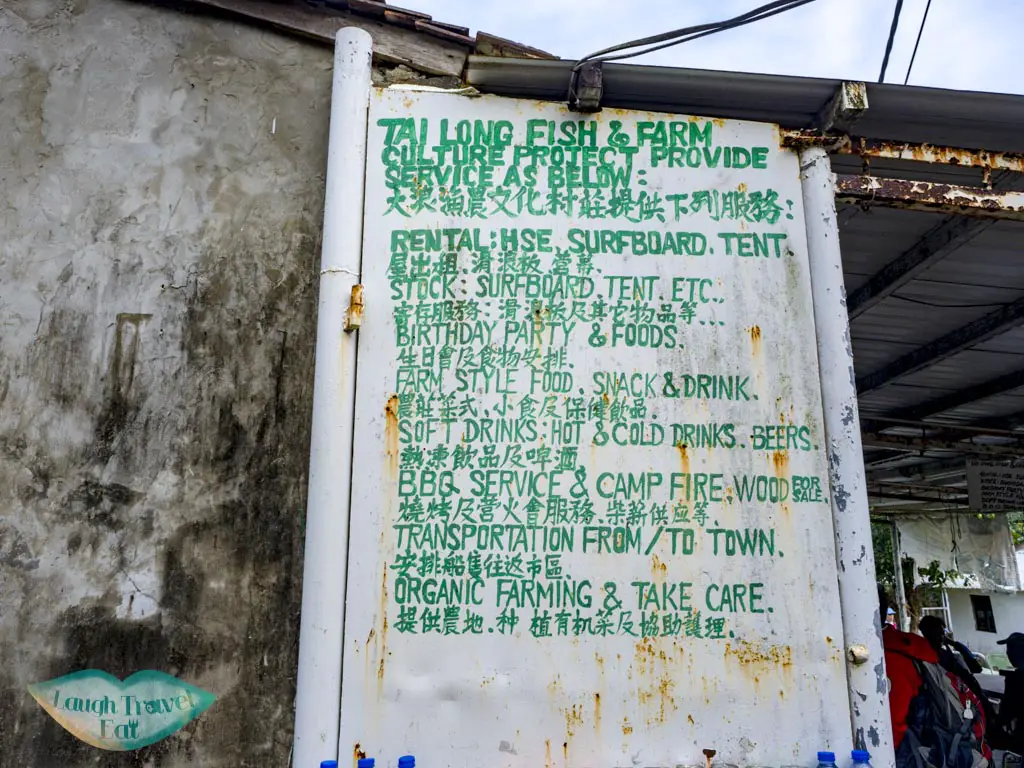 TAI LONG FISH & FARM
CULTURE PROTECT PROVIDE
SERVICE AS BELOW:
大浪漁農文化村莊提供下列服務:
RENTAL: HSE, SURFBOARD. TENT.
屋出租. 滑浪板. 營幕.
STOCK: SURFBOARD. TENT. ETC..
寄存服務: 滑浪板及其它物品等...
BIRTHDAY PARTY & FOODS.
生日會及食物安排.
FARM STYLE FOOD. SNACK & DRINK.
農莊菜式. 小食及保健飲品.
SOFT DRINKS: HOT & COLD DRINKS. BEERS.
熱凍飲品及啤酒
BBQ SERVICE & CAMP FIRE, WOOD FOR SALE.
燒烤及營火會服務. 柴薪供应等.
TRANSPORTATION FROM/TO TOWN.
安排船隻往返市區
ORGANIC FARMING & TAKE CARE.
提供農地. 种植有机菜及協助護理.
Laugh Travel
Eat